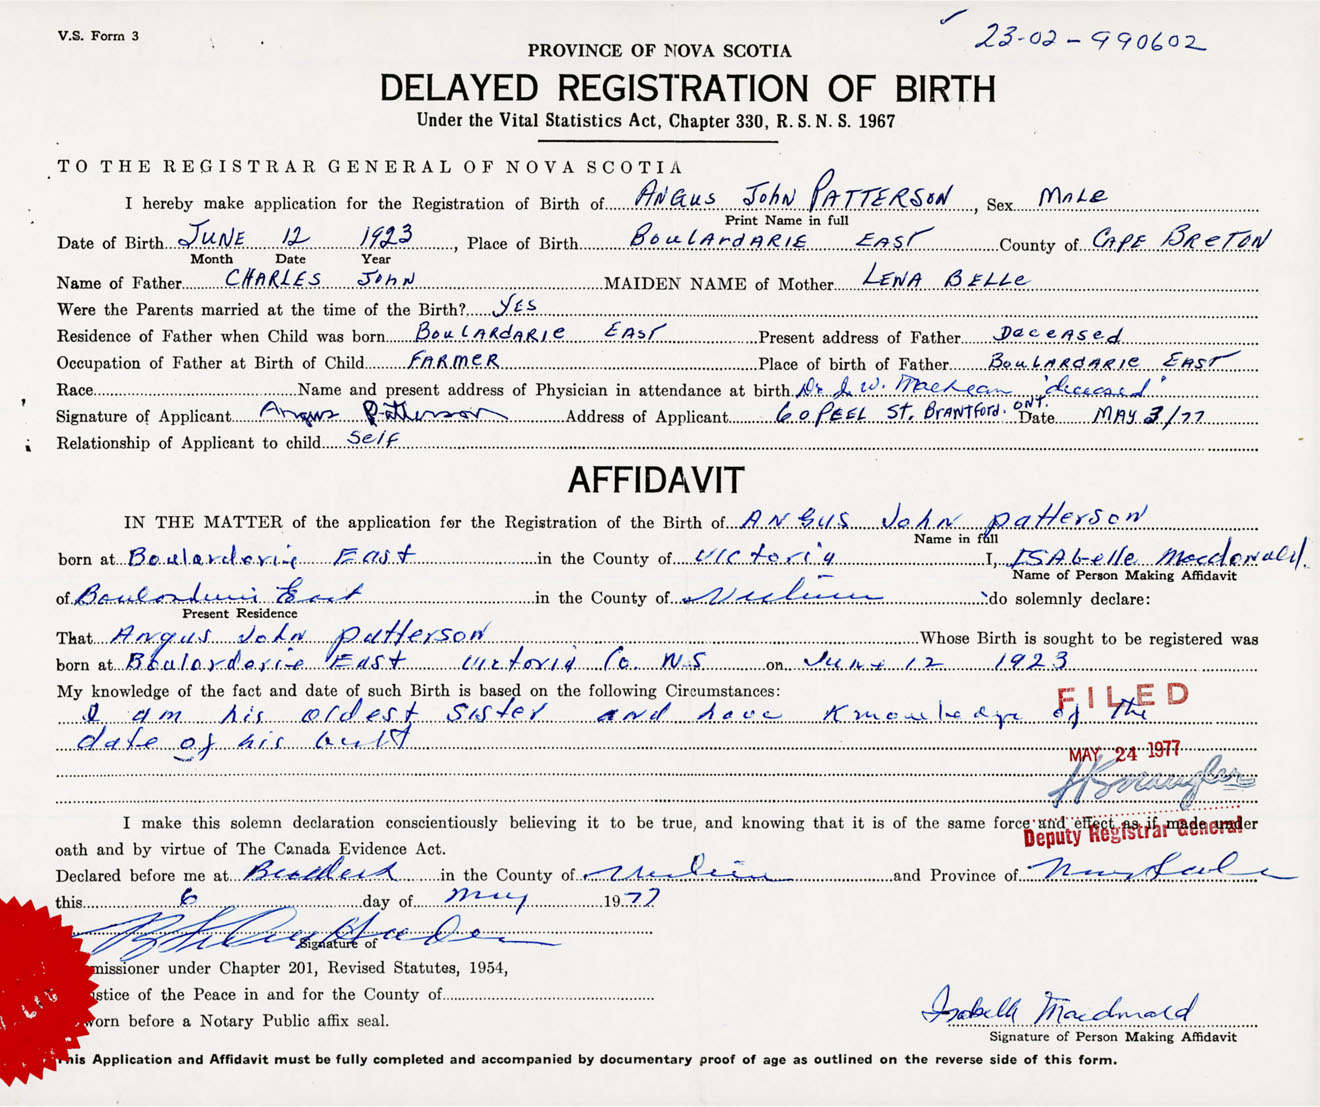 V.S. Form 3
23-02-990602
PROVINCE OF NOVA SCOTIA
DELAYED REGISTRATION OF BIRTH
Under the Vital Statistics Act, Chapter 330, R. S. N. S. 1967
TO THE REGISTRAR GENERAL OF NOVA SCOTIA
I hereby make application for the Registration of Birth of ANGUS JOHN PATTERSON, Sex MALE
Print Name in full
Date of Birth JUNE 12 1923, Place of Birth BOULARDARIE EAST County of CAPE BRETON
Month Date Year
Name of Father CHARLES JOHN MAIDEN NAME of Mother LENA BELLE
Were the Parents married at the time of the Birth? YES
Residence of Father when Child was born BOULARDARIE EAST Present address of Father DECEASED
Occupation of Father at Birth of Child FARMER Place of birth of Father BOULARDARIE EAST
Race Name and present address of Physician in attendance at birth Dr. J. W. MacLean "deceased"
Signature of Applicant Angus Patterson Address of Applicant 60 PEEL ST. BRANTFORD. ONT. Date MAY 3/77
Relationship of Applicant to child Self
AFFIDAVIT
IN THE MATTER of the application for the Registration of the Birth of ANGUS John patterson
Name in full
born at Boularderie East in the County of Victoria I, ISAbelle Macdonald.
Name of Person Making Affidavit
of Boularderie East in the County of Victoria do solemnly declare:
Present Residence
That Angus John patterson Whose Birth is sought to be registered was
born at Boularderie East Victoria Co. N.S on June 12 1923
My knowledge of the fact and date of such Birth is based on the following Circumstances:
FILED
I am his oldest sister and have Knowledge of the
date of his birth
MAY 24 1977
I make this solemn declaration conscientiously believing it to be true, and knowing that it is of the same force and effect as if made under
Deputy Registrar General
oath and by virtue of The Canada Evidence Act.
Declared before me at Baddeck in the County of Victoria and Province of Nova Scotia
this 6 day of May 1977
Signature of
missioner under Chapter 201, Revised Statutes, 1954,
stice of the Peace in and for the County of
worn before a Notary Public affix seal.
Isabelle Macdonald
Signature of Person Making Affidavit
This Application and Affidavit must be fully completed and accompanied by documentary proof of age as outlined on the reverse side of this form.